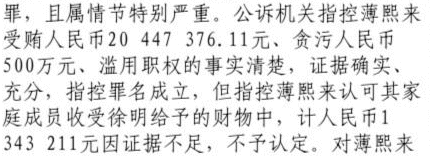 罪，且属情节特别严重。公诉机关指控薄熙来
受贿人民币20 447 376.11元、贪污人民币
500万元、滥用职权的事实清楚，证据确实、
充分，指控罪名成立，但指控薄熙来认可其家
庭成员收受徐明给予的财物中，计人民币1
343 211元因证据不足，不予认定。对薄熙来